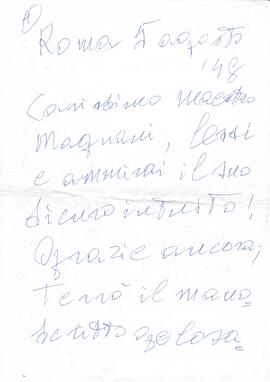 1)
Roma 5 agosto
'48
Carissimo maestro
Magnani, lessi
e ammirai il suo
sicuro intuito!
Grazie ancora;
Terrò il mano=
scritto gelosa=